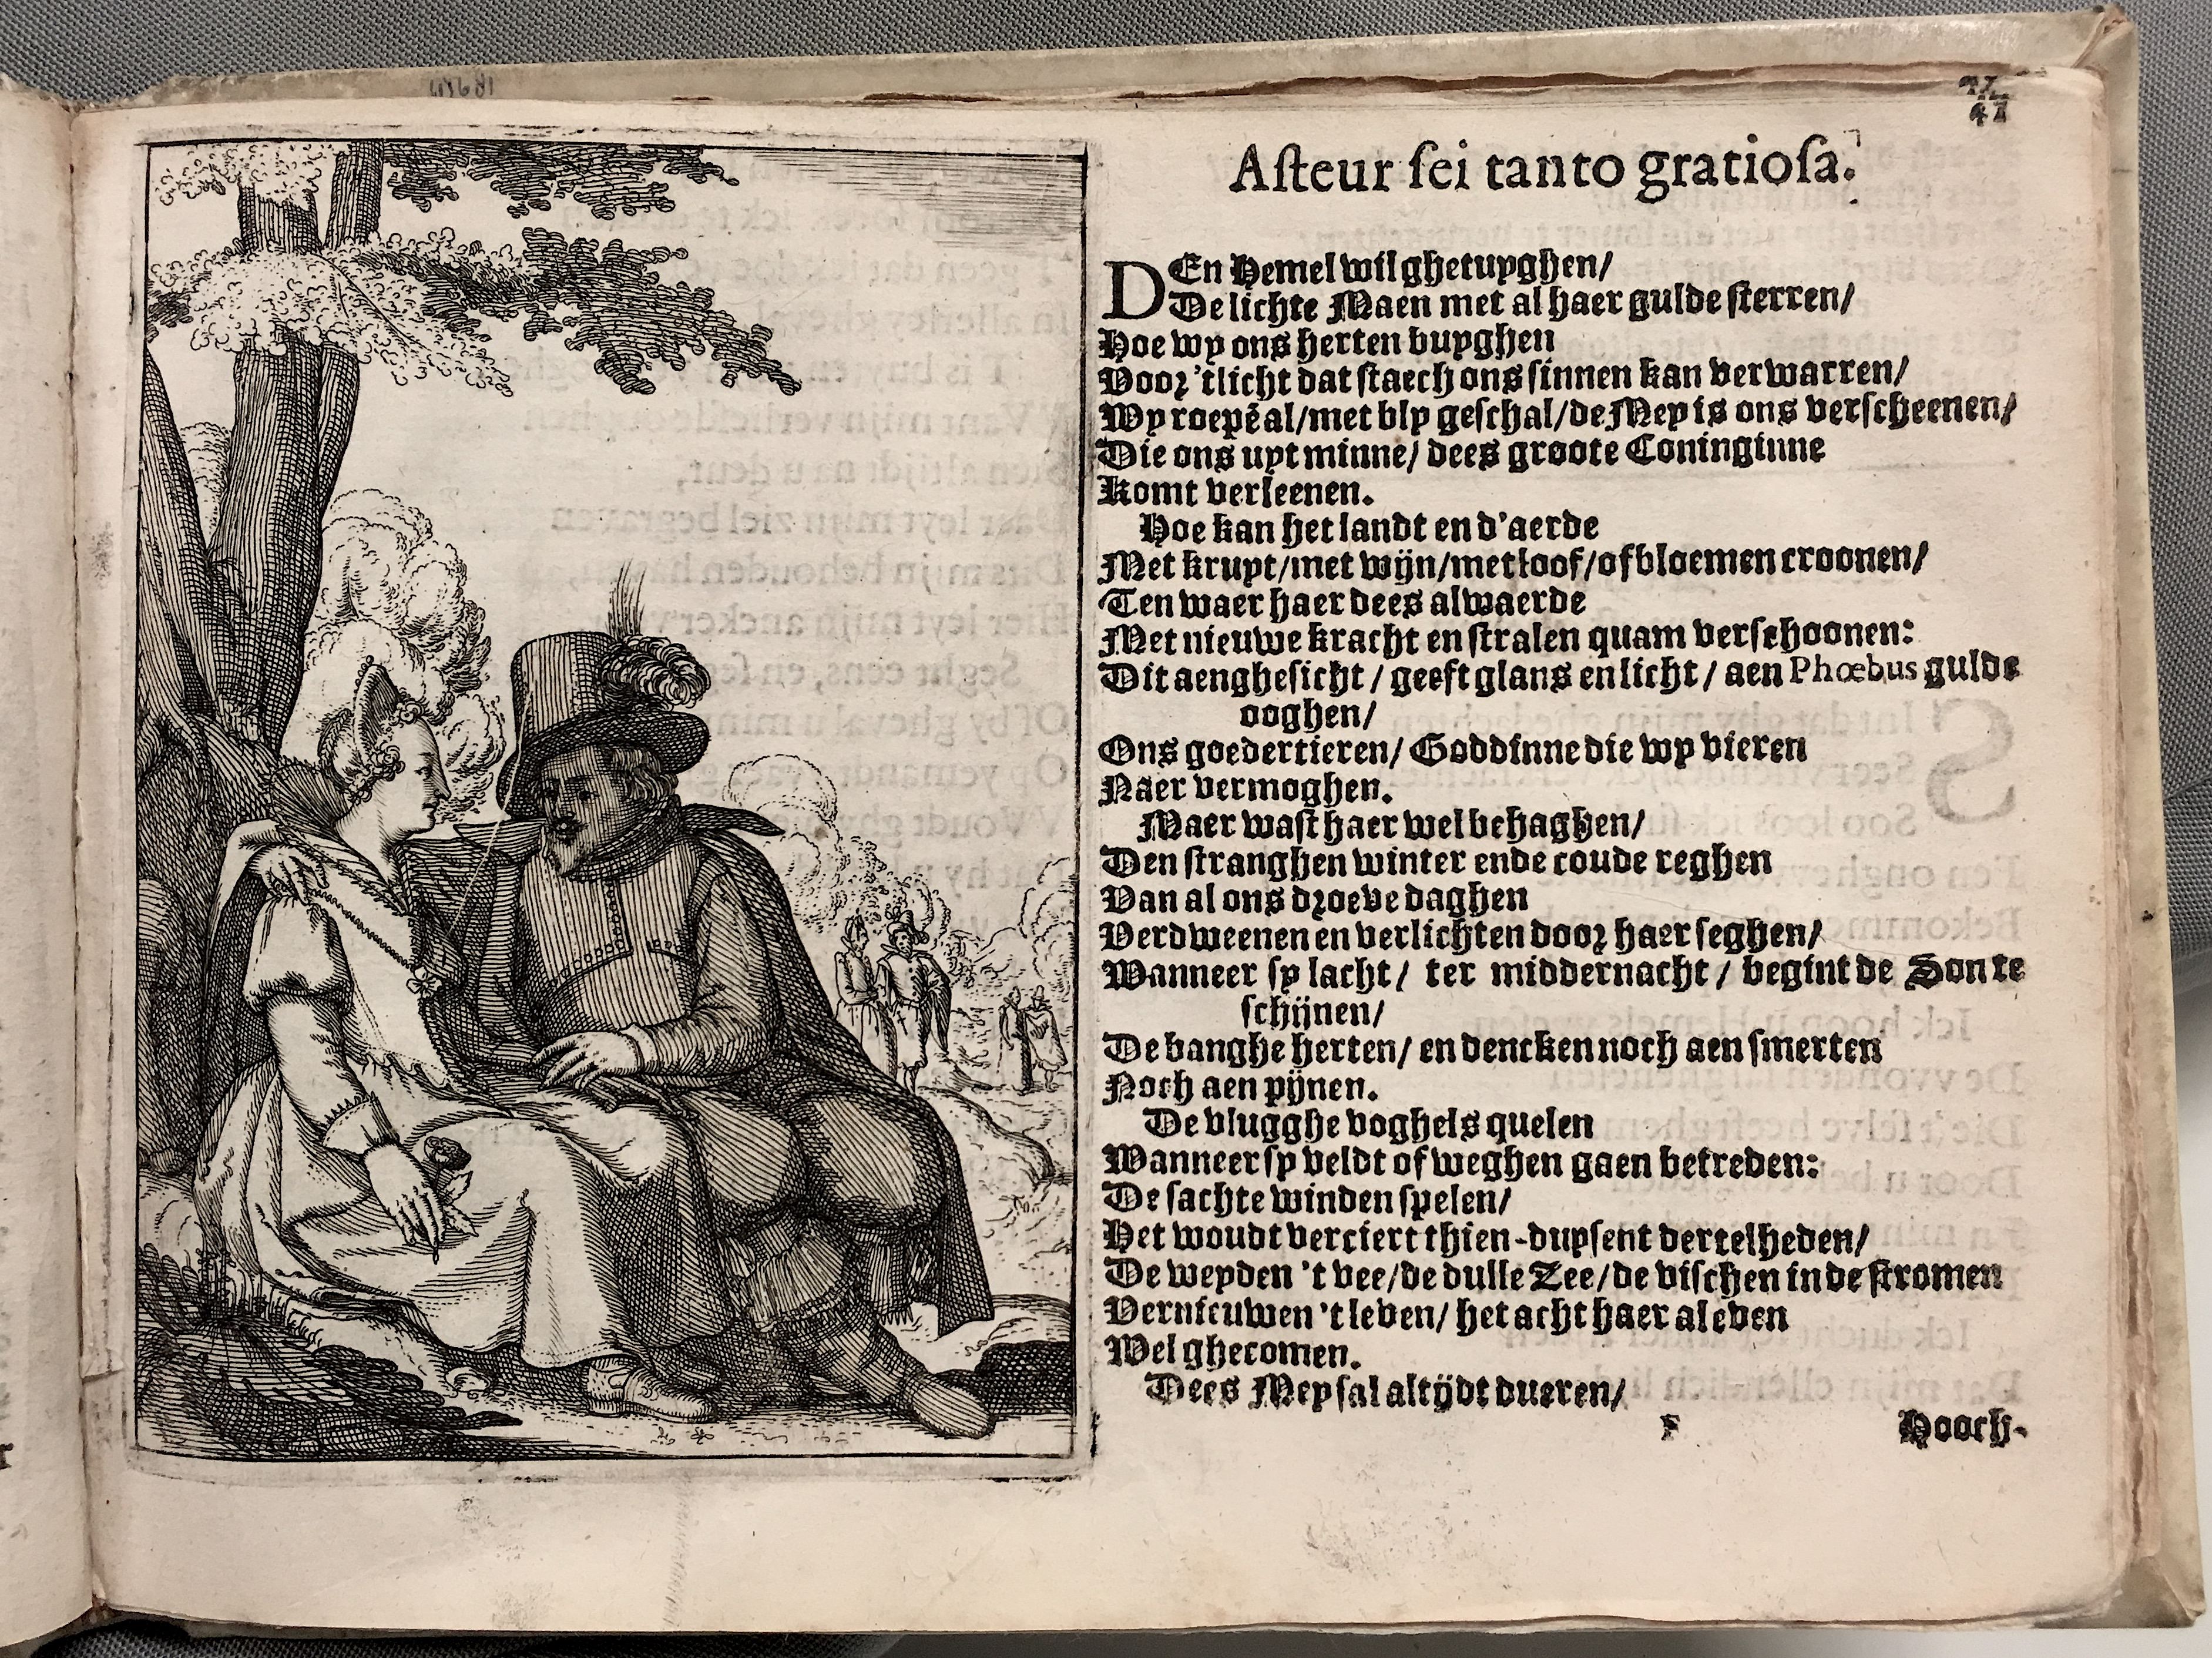 47
Aſteur ſei tanto gratioſa.
DEn Hemel wil ghetuyghen/
De lichte Maen met al haer gulde ſterren/
Hoe wy ons herten buyghen
Voor 'tlicht dat ſtaech ons ſinnen kan verwarren/
Wy roepē al/met bly geſchal/de Mey is ons verſcheenen/
Die ons uyt minne/ dees groote Coninginne
Komt verleenen.
Hoe kan het landt en d'aerde
Met kruyt/met wijn/met loof/of bloemen croonen/
Ten waer haer dees alwaerde
Met nieuwe kracht en ſtralen quam verſchoonen:
Dit aengheſicht/ geeft glans en licht/ aen Phœbus gulde
ooghen/
Ons goedertieren/ Goddinne die wy vieren
Naer vermoghen.
Maer waſt haer wel behaghen/
Den ſtranghen winter ende coude reghen
Van al ons droeve daghen
Verdweenen en verlichten door haer ſeghen/
Wanneer ſy lacht/ ter middernacht/ begint de Son te
ſchijnen/
De banghe herten/ en dencken noch aen ſmerten
Noch aen pijnen.
De vlugghe voghels quelen
Wanneer ſy veldt of weghen gaen betreden:
De ſachte winden ſpelen/
Het woudt verciert thien-duyſent dertelheden/
De weyden 't vee/de dulle Zee/de viſchen in de ſtromen
Vernieuwen 't leven/ het acht haer al even
Wel ghecomen.
Dees Mey ſal altijdt dueren/
F Hooch-